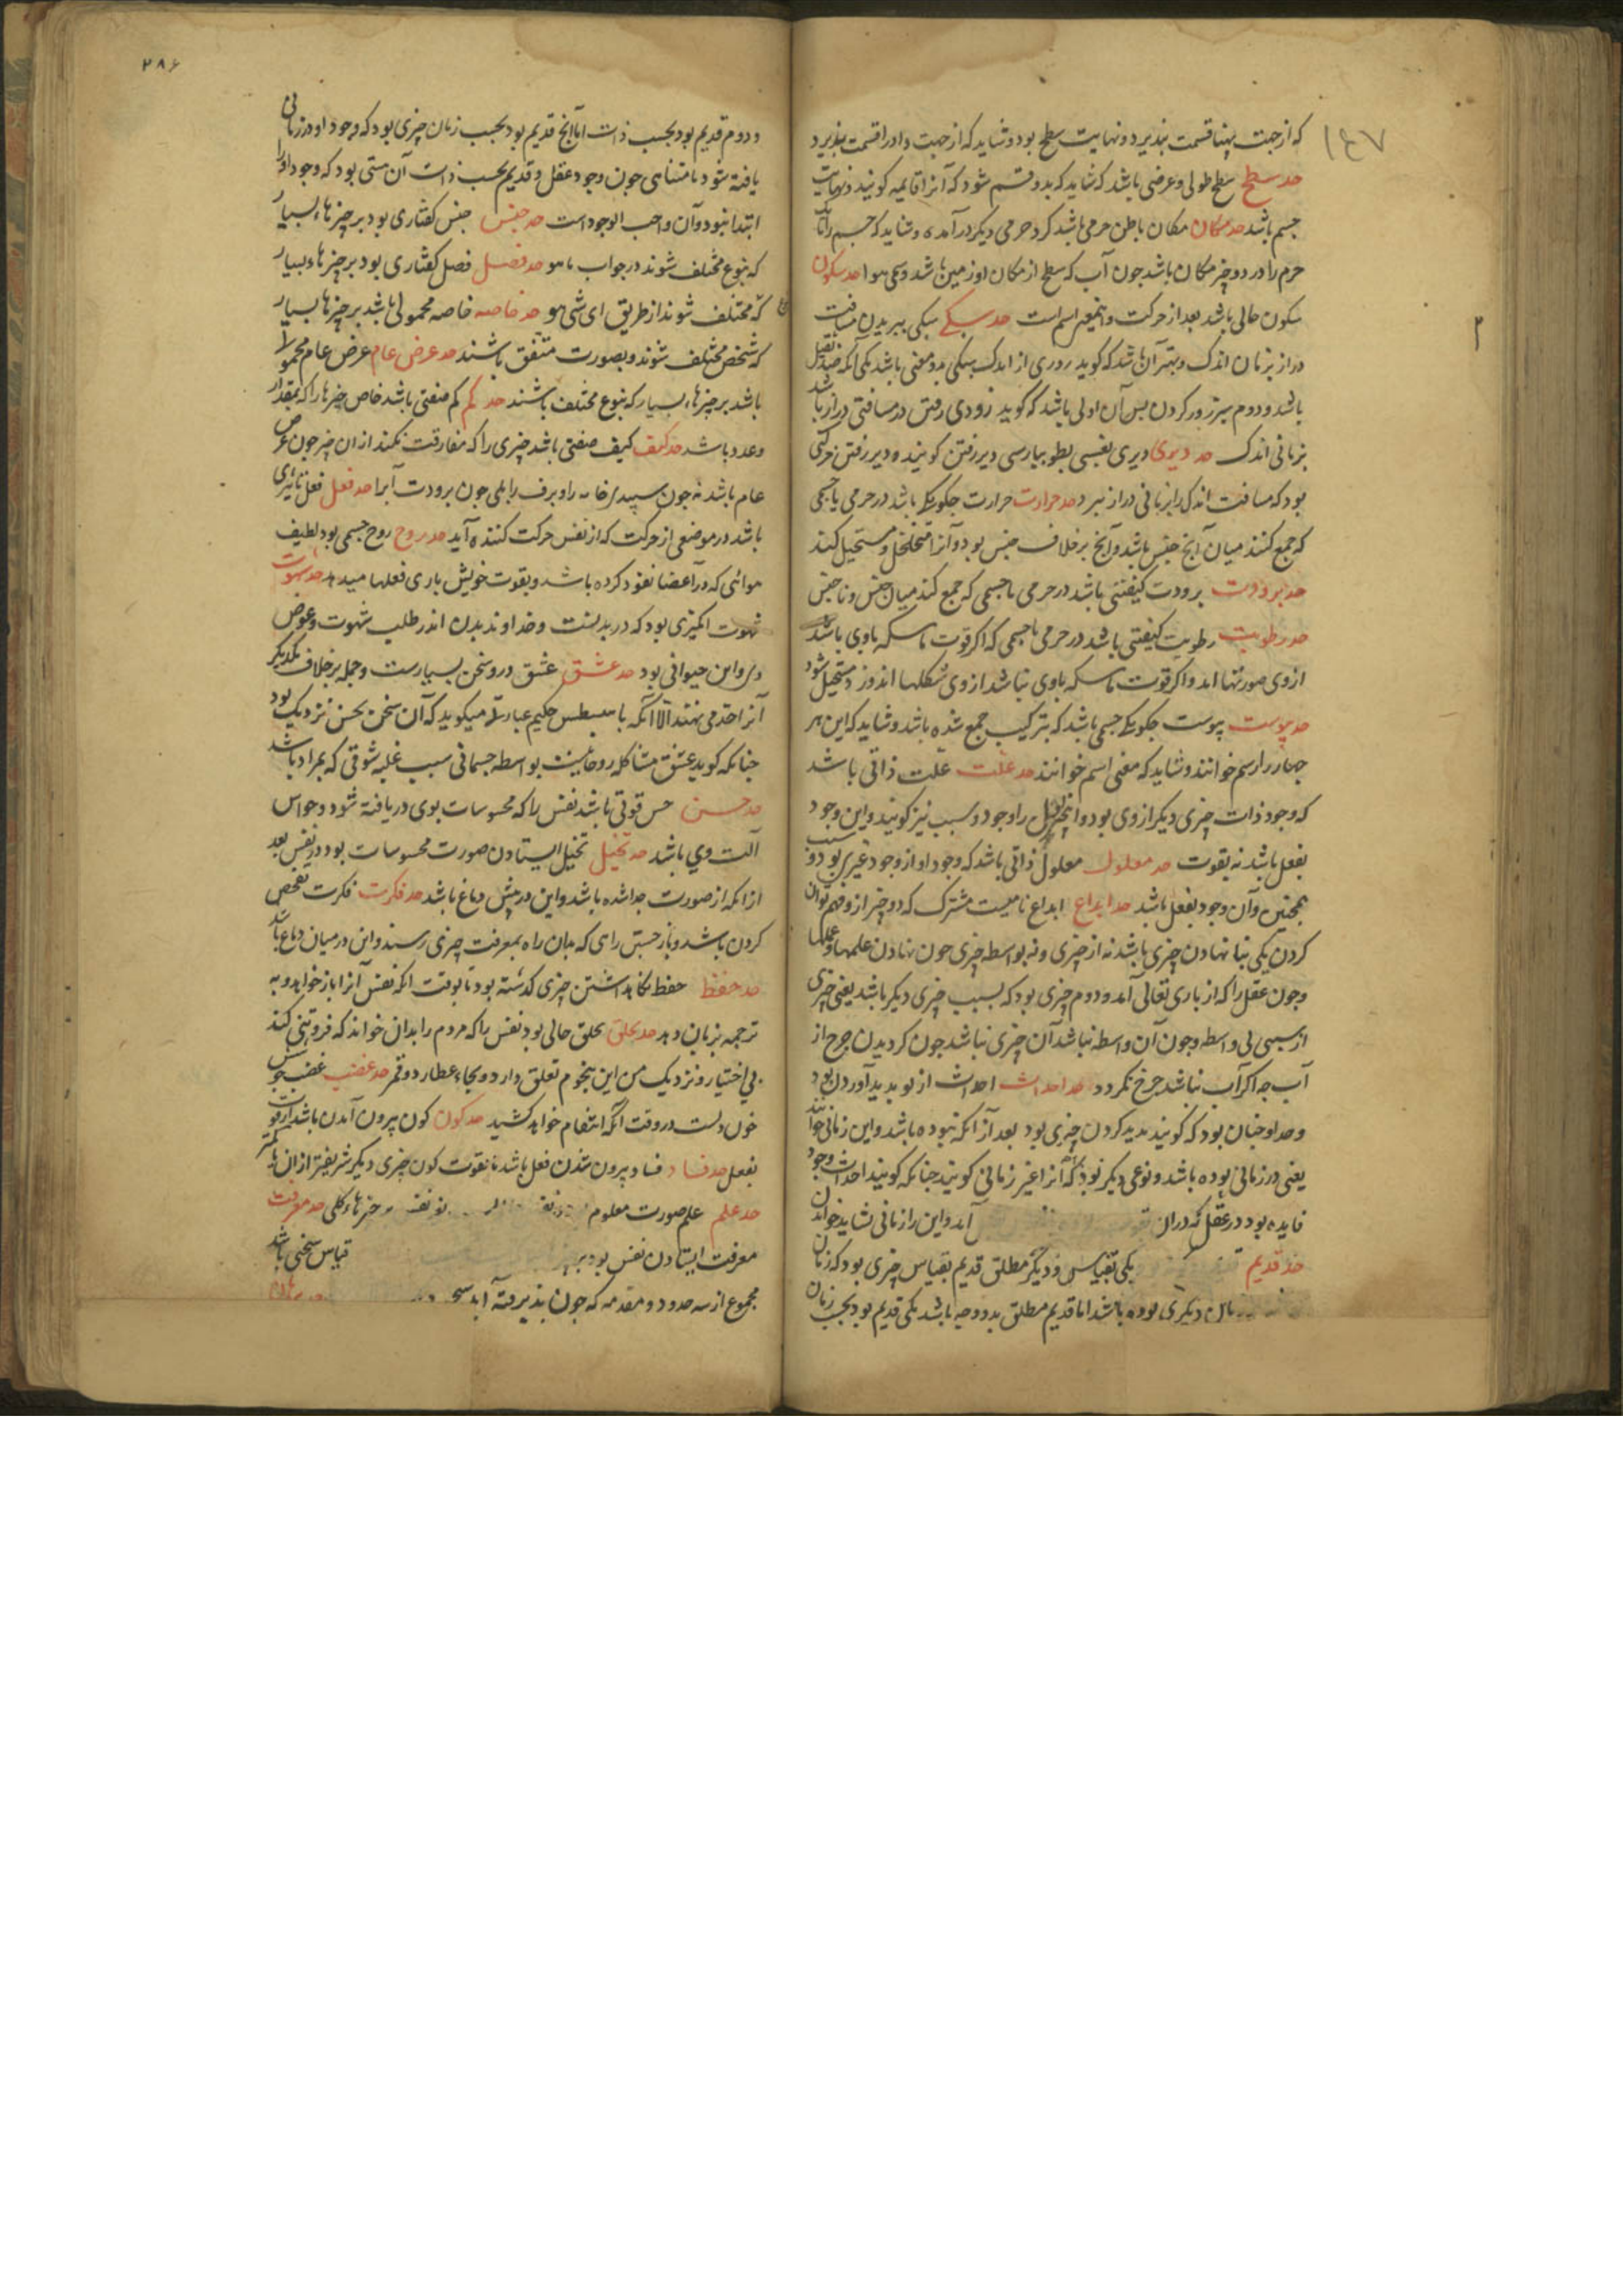 ۱۴۷
که از جهت پهنا قسمت پذیرد و نهایت سطح بود و شاید که از جهت و او را قسمت پذیرد
حد سطح سطح طولی و عرضی باشد که شاید که بدو قسم شود که آنرا قایمه کویند و نهایت
جسم باشد حد مکان مکان باطن جرمی باشد کرد جرمی دیکر درآمده و نشاید که جسم را تا
جرم را در دو چیز مکان باشد چون آب که سطح از مکان او زمین باشد و سمی هوا حد سکون
سکون حالی باشد بعد از حرکت و اسم است حد سبکی سبکی ببریدن مسافت
دراز بزمان اندک و بهتر آن باشد که کوید زودی از اندک سبکی بدو معنی باشد یکی آنکه ضد ثقیل
باشد و دوم سرزور کردن پس آن اولی باشد که کوید زودی رفتن در مسافتی دراز باشد
بزمانی اندک حد دیری دیری یعنی بطو بپارسی دیر رفتن کویند و دیر رفتن حرکتی
بود که مسافت اندک را بزمانی دراز ببرد حد حرارت حرارت چکونکی باشد در جرمی یا جسمی
که جمع کند میان آنچ جنس باشد و آنچ برخلاف جنس بود و آنرا متخلخل و مستحیل کند
حد برودت برودت کیفیتی باشد در جرمی یا جسمی که جمع کند میان جنس و ناجنس
حد رطوبت رطوبت کیفیتی باشد در جرمی یا جسمی که اکر قوت ماسکه باوی باشد
از وی صورتها آید و اکر قوت ماسکه باوی نباشد از وی شکلها اندوزد مستحیل شود
حد یبوست یبوست چکونکی جسمی باشد که بترکیب جمع شده باشد و شاید که این هر
چهار را رسم خوانند و شاید که معنی اسم خوانند حد علت علت ذاتی باشد
که وجود ذات چیزی دیکر از وی بود و را وجود و سبب نیز کویند و این وجود
بفعل باشد نه بقوت حد معلول معلول ذاتی باشد که وجود او از وجود غیری بود و سبب
همچنین و آن وجود بفعل باشد حد ابداع ابداع نامیست مشترک که دو چیز از و فهم توان
کردن یکی بنا نهادن چیزی باشد نه از چیزی و نه بواسطه چیزی چون نهادن علمها و عملها
و چون عقل را که از باری تعالی آمد و دوم چیزی بود که بسبب چیزی دیکر باشد یعنی چیزی
از سببی بی واسطه و چون آن واسطه نباشد آن چیزی نباشد چون کردیدن چرخ از
آب چه اکر آب نباشد چرخ نکردد حد احداث احداث از نو پدید آوردن بود
و حد او چنان بود که کویند پدید کردن چیزی بود بعد از آنکه نبوده باشد و این زمانی خوانند
یعنی در زمانی بوده باشد و نوعی دیکر بود که آنرا غیر زمانی کویند چنانکه کویند احداث وجود
فایده بود در عقل که در آن آید و این را زمانی نشاید خواندن
حد قدیم یکی بقیاس و دیکر مطلق قدیم بقیاس چیزی بود که زمان
دیکری بوده باشد اما قدیم مطلق بدو وجه باشد یکی قدیم بود بحسب زمان
۲۸۶
و دوم قدیم بود بحسب ذات اما آنچ قدیم بود بحسب زمان چیزی بود که وجود او در زمانی
یافته شود نامتناهی چون وجود عقل و قدیم بحسب ذات آن هستی بود که وجود او را
ابتدا نبود و آن واجب الوجود است حد جنس جنس کفتاری بود بر چیزهاء بسیار
که بنوع مختلف شوند در جواب ما هو حد فصل فصل کفتاری بود بر چیزهاء بسیار
که مختلف شوند از طریق ای شی هو حد خاصه خاصه محمولی باشد بر چیزها بسیار
که شخص مختلف شوند و بصورت متفق باشند حد عرض عام عرض عام محمولی
باشد بر چیزهاء بسیار که بنوع مختلف باشند حد کم کم صفتی باشد خاص چیزها را که بمقدار
و عدد باشد حد کیف کیف صفتی باشد چیزی را که مفارقت نکند از آن چیز چون عرض
عام باشد نه چون سپیدی جامه را و برف را بلی چون برودت آب را حد فعل فعل تاثیری
باشد در موضعی از حرکت که از نفس حرکت کننده آید حد روح روح جسمی بود لطیف
هوائی که در اعضا نفوذ کرده باشد و بقوت خویش یاری فعلها میدهد حد شهوت
شهوت انکیزی بود که در بدنست و خداوند بدن اندر طلب شهوت و عوض
و این حیوانی بود حد عشق عشق در و سخن بسیارست و جمله برخلاف یکدیکر
آنرا حد می نهند الا آنکه حکیم عبارة میکوید که آن سخن بحسن نزدیک بود
چنانکه کوید عشق مشاکله روحانیت بواسطه جسمانی بسبب غلبه شوقی که بمراد باشد
حد حس حس قوتی باشد نفس را که محسوسات بوی دریافته شود و حواس
آلت وی باشد حد تخیل تخیل ایستادن صورت محسوسات بود در نفس بعد
از آنکه از صورت جدا شده باشد و این در پیش دماغ باشد حد فکرت فکرت تفحص
کردن باشد و باز جستن راهی که بدان راه بمعرفت چیزی رسند و این در میان دماغ باشد
حد حفظ حفظ نکاهداشتن چیزی کذشته بود تا بوقت آنکه نفس آنرا باز خواهد و به
ترجمه بزبان دهد حد تملق تملق حالی بود نفس را که مردم را بدان خواند که فروتنی کند
بی اختیار و نزدیک من این بنجوم تعلق دارد و بجاء عطارد و قمر حد غضب غضب جوش
خون دلست در وقت آنکه انتقام خواهد کشید حد کون کون بیرون آمدن باشد از قوت
بفعل حد فساد فساد بیرون شدن فعل باشد تا بقوت کون چیزی دیکر شریفتر از آن یا کمتر
حد علم علم صورت معلوم چیزهاء کلی حد معرفت
معرفت ایستادن نفس بود بر قیاس سخنی باشد
مجموع از سه حدود و مقدمه که چون پذیرفته آید